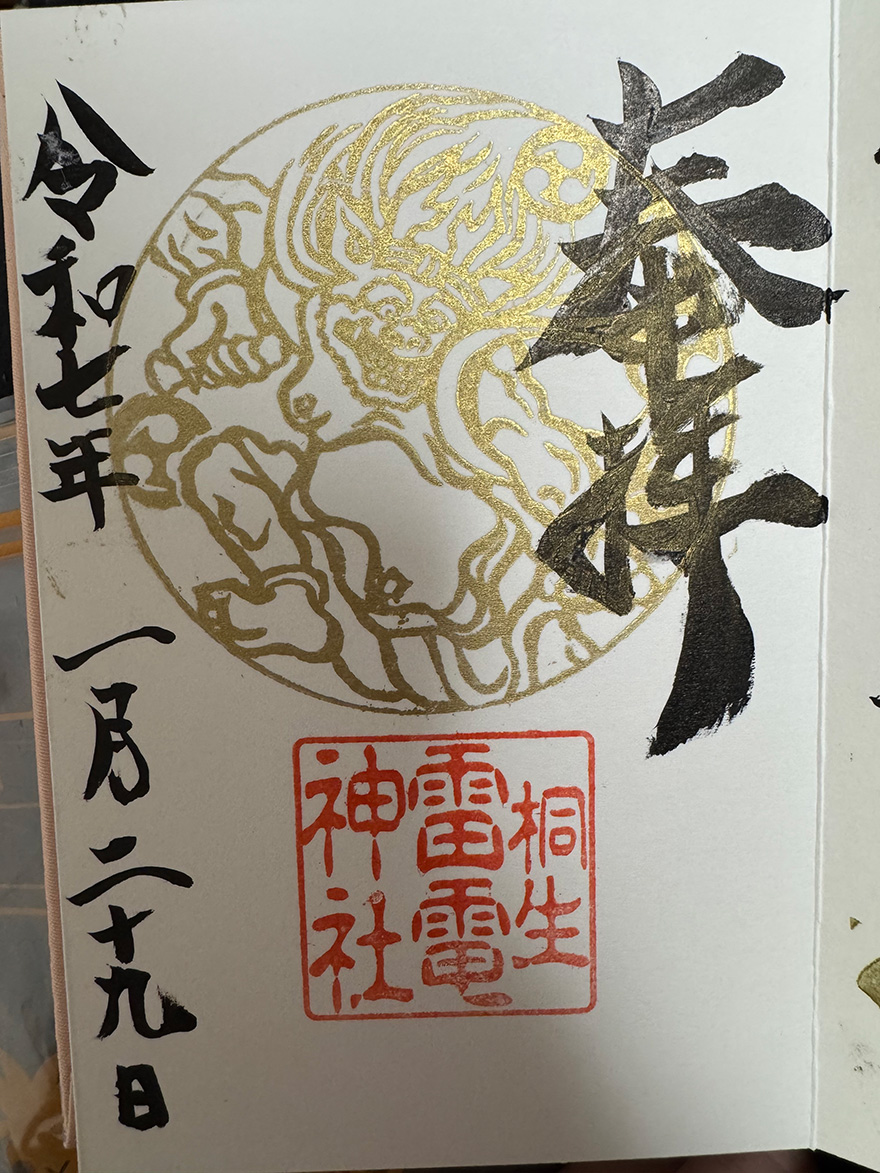 奉拝
桐生
雷電
神社
令和七年 一月二十九日